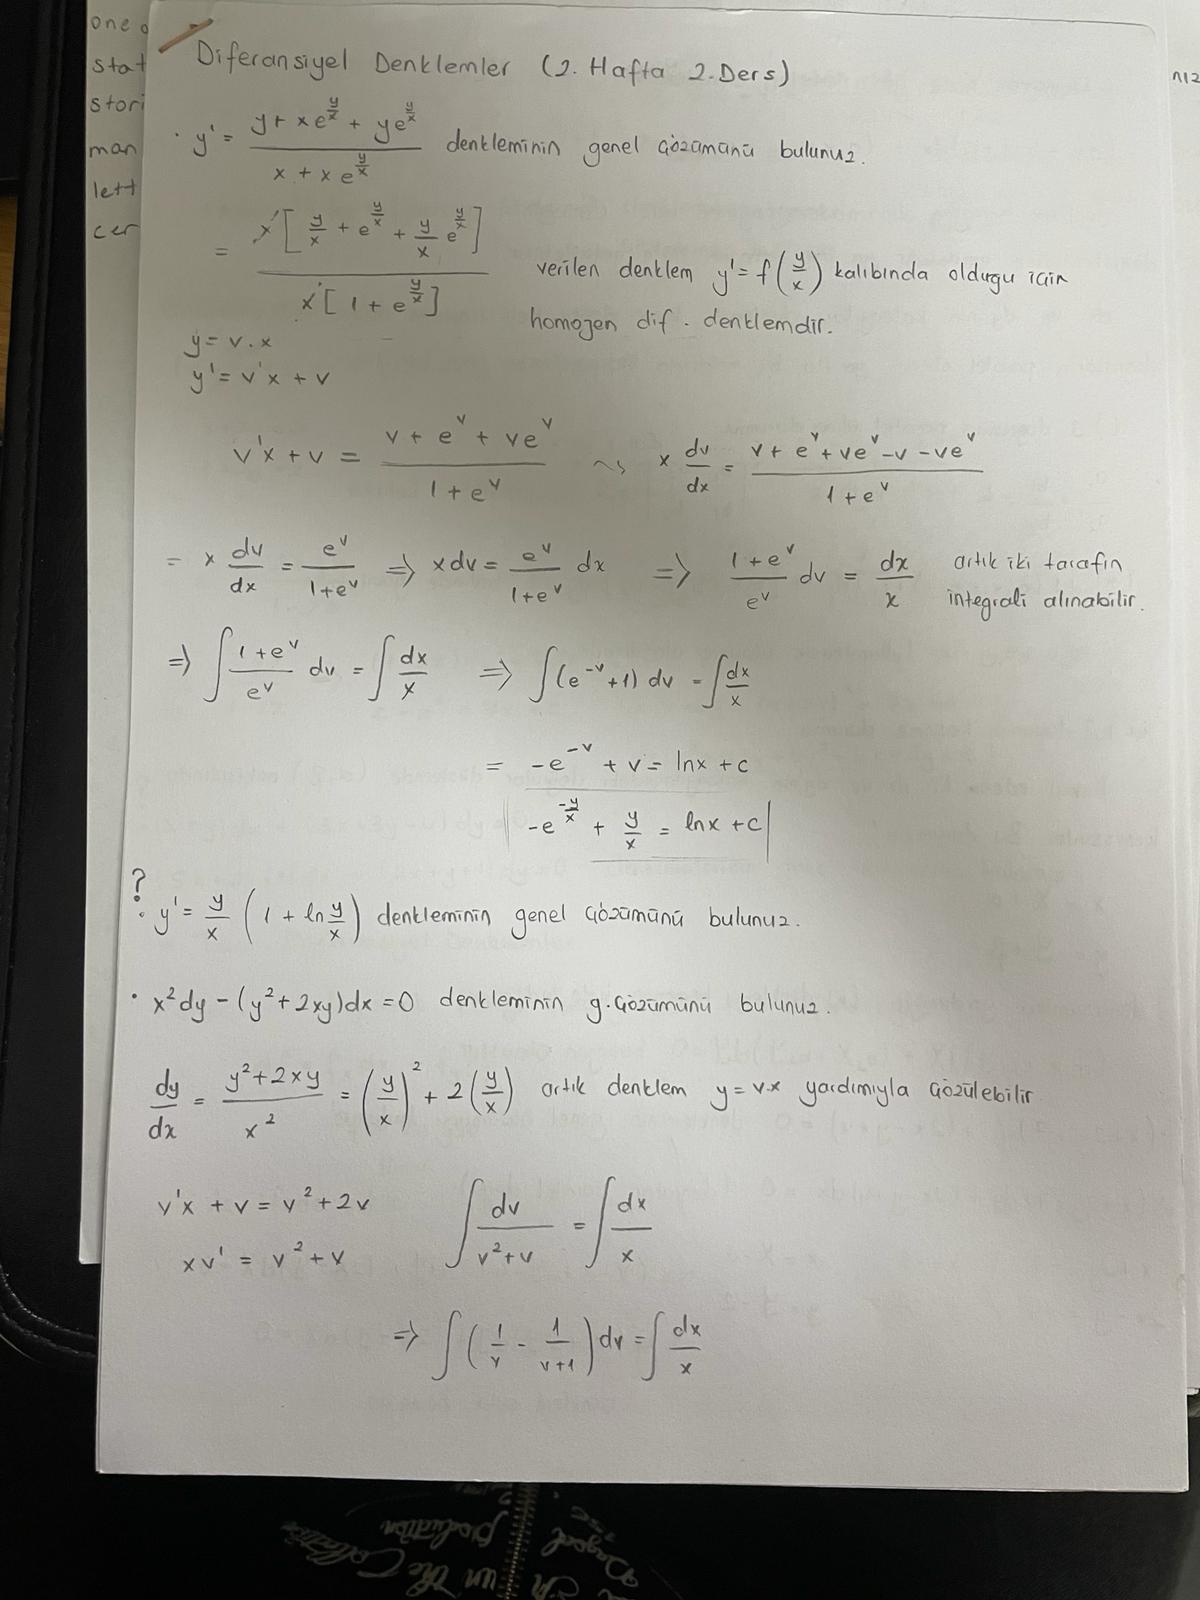 one
stat
stori
man
lett
cer
n12
Diferansiyel Denklemler (2. Hafta 2.Ders)
• y' = (y + xe^(y/x) + ye^(y/x)) / (x + xe^(y/x)) denkleminin genel çözümünü bulunuz.
= x[y/x + e^(y/x) + y/x e^(y/x)] / x[1 + e^(y/x)] verilen denklem y' = f(y/x) kalıbında olduğu için
homojen dif. denklemdir.
y = v.x
y' = v'x + v
v'x + v = (v + e^v + ve^v) / (1 + e^v) ~> x dv/dx = (v + e^v + ve^v - v - ve^v) / (1 + e^v)
= x dv/dx = e^v / (1+e^v) => x dv = e^v / (1+e^v) dx => (1+e^v) / e^v dv = dx/x artık iki tarafın
integrali alınabilir.
=> ∫ (1+e^v)/e^v dv = ∫ dx/x => ∫(e^-v + 1) dv = ∫ dx/x
= -e^-v + v = lnx + c
-e^(-y/x) + y/x = lnx + c
?
• y' = y/x (1 + ln y/x) denkleminin genel çözümünü bulunuz.
• x²dy - (y² + 2xy)dx = 0 denkleminin g.çözümünü bulunuz.
dy/dx = (y² + 2xy) / x² = (y/x)² + 2(y/x) artık denklem y = v.x yardımıyla çözülebilir
v'x + v = v² + 2v ∫ dv/(v²+v) = ∫ dx/x
xv' = v² + v
=> ∫(1/v - 1/(v+1)) dv = ∫ dx/x
production
un the Collection